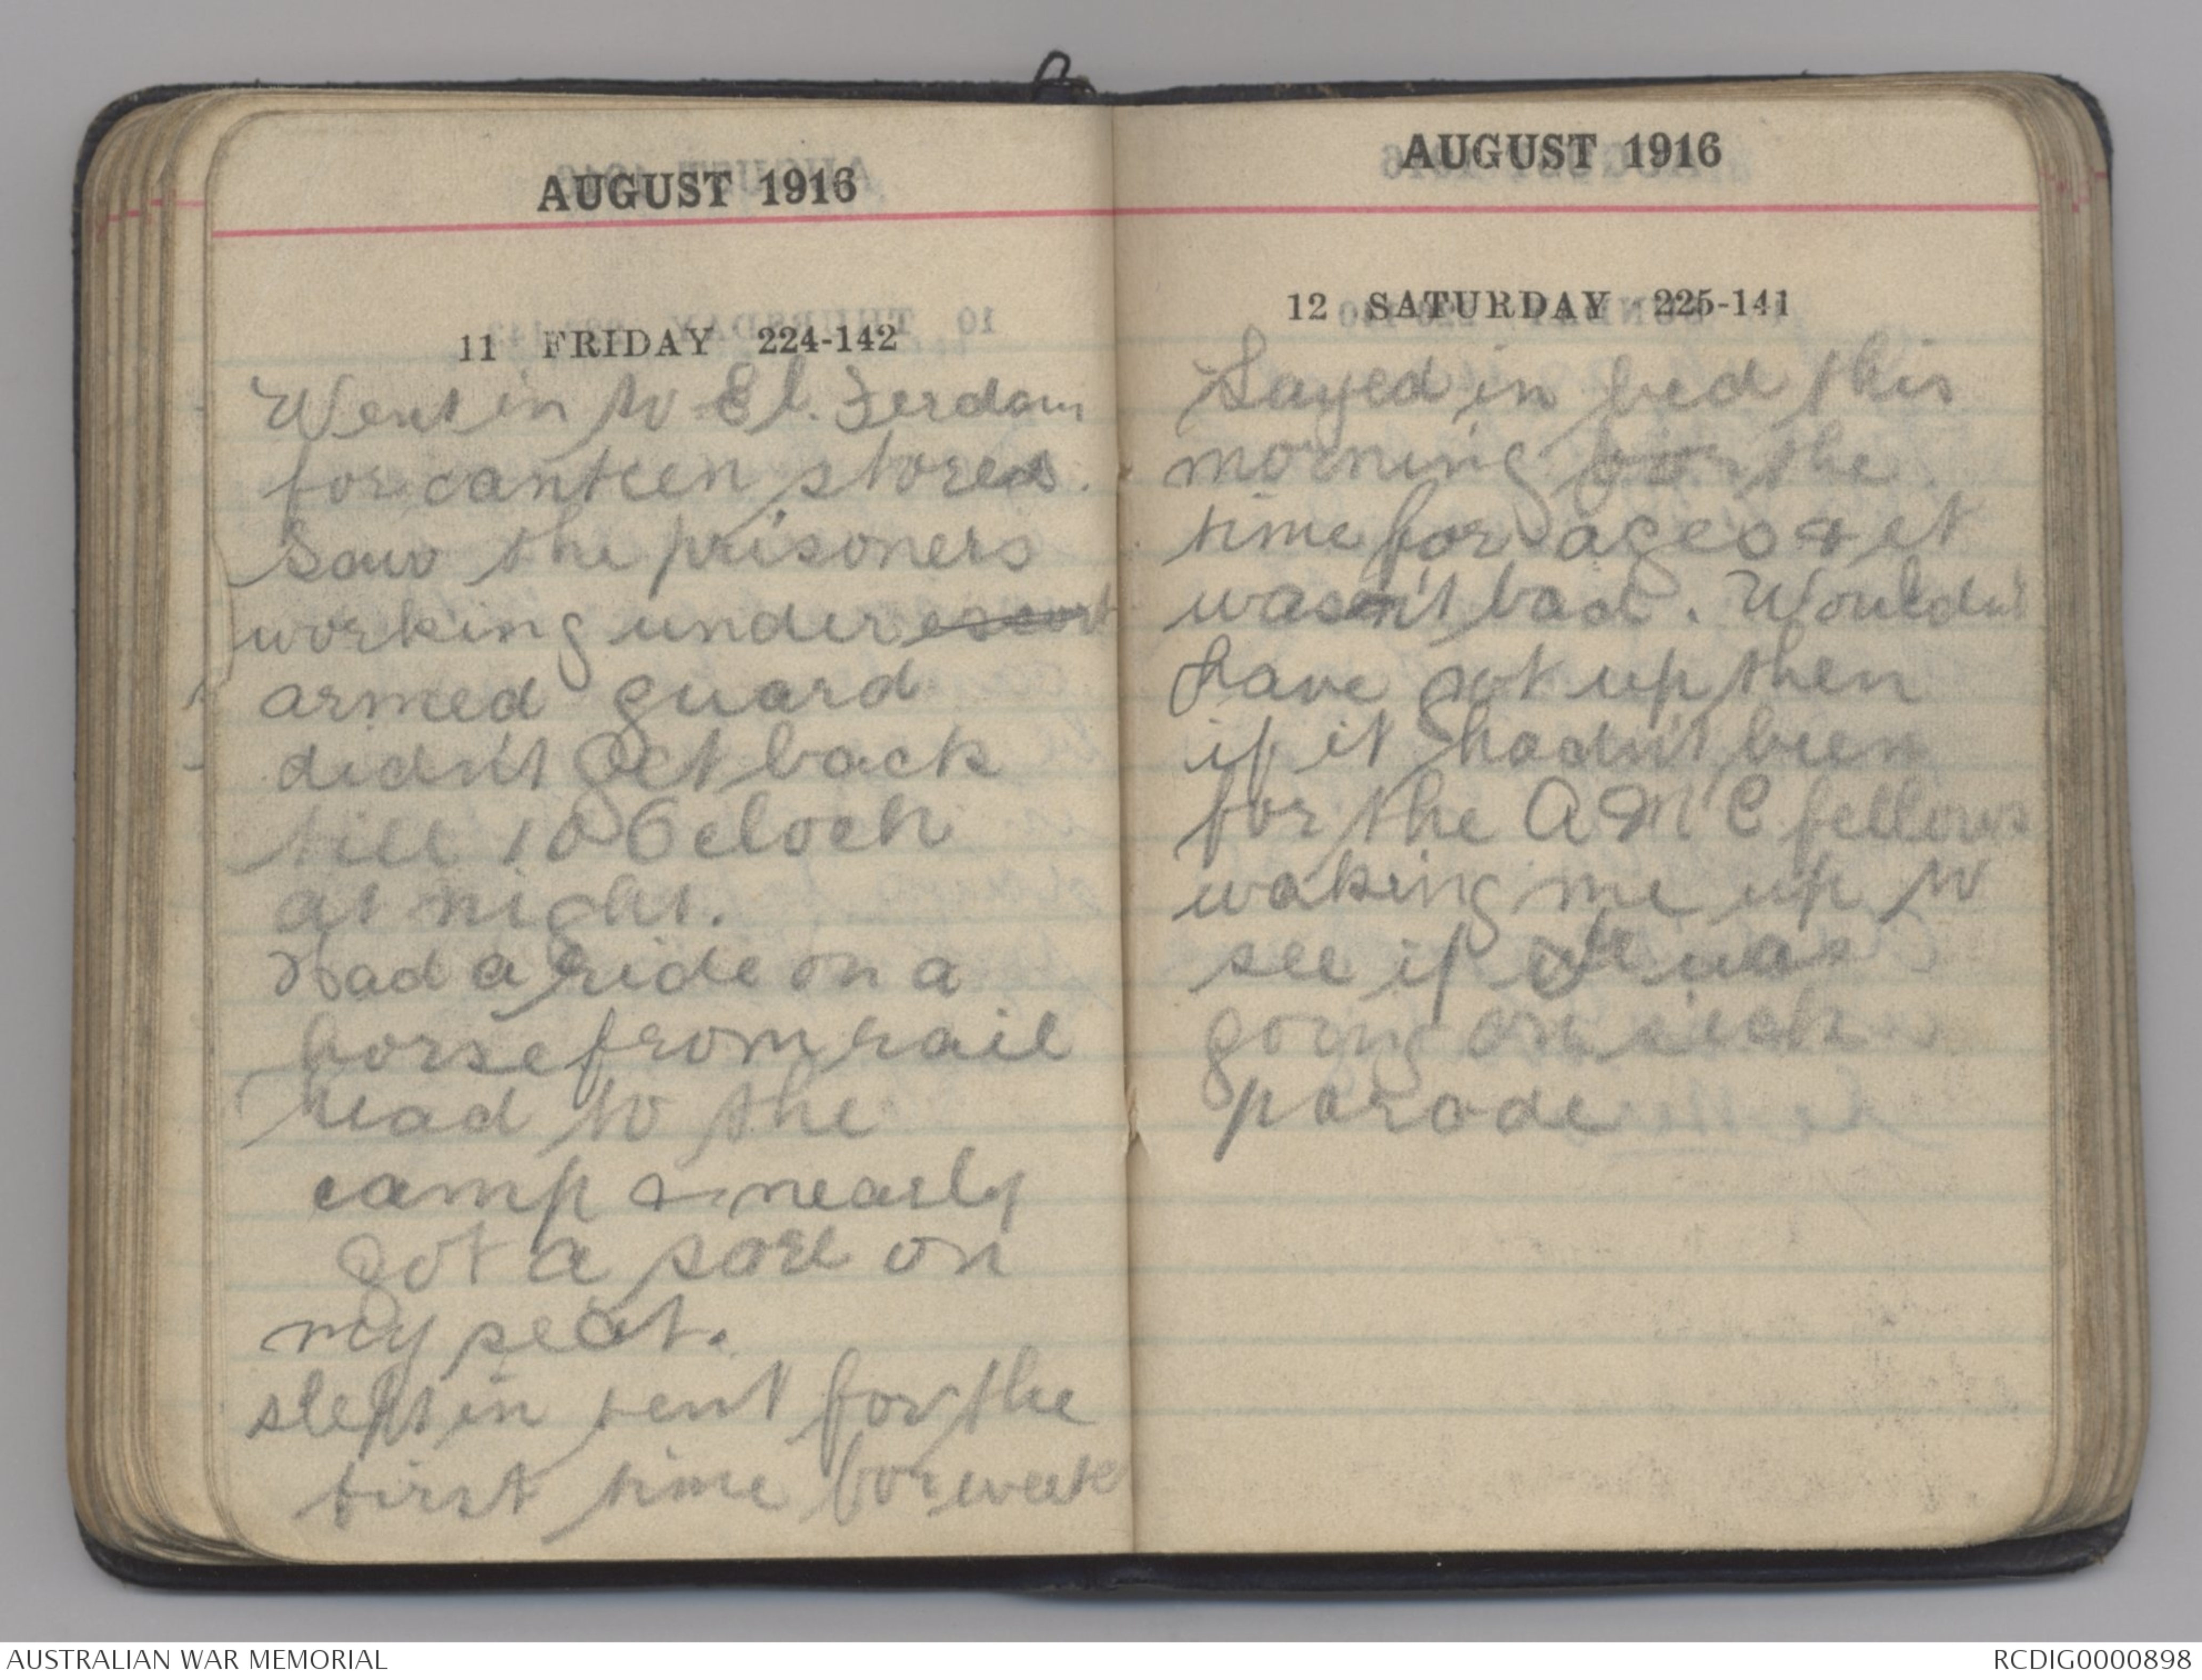 AUGUST 1916
11 FRIDAY 224-142
Went in to El. Ferdan
for canteen stores.
Saw the prisoners
working under escort
armed guard
didn't get back
till 10 Oclock
at night.
Had a ride on a
horse from rail
head to the
camp & nearly
got a sore on
my seat.
slept in tent for the
first time for week
AUGUST 1916
12 SATURDAY 225-141
Layed in bed this
morning for the
time for ages & it
wasn't bad. Wouldn't
have got up then
if it hadn't been
for the AMC fellows
waking me up to
see if I was
going on sick
parade
AUSTRALIAN WAR MEMORIAL
RCDIG0000898